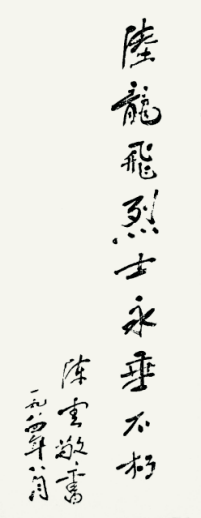 陸龍飛烈士永垂不朽
陈雲敬書
一九八四年八月